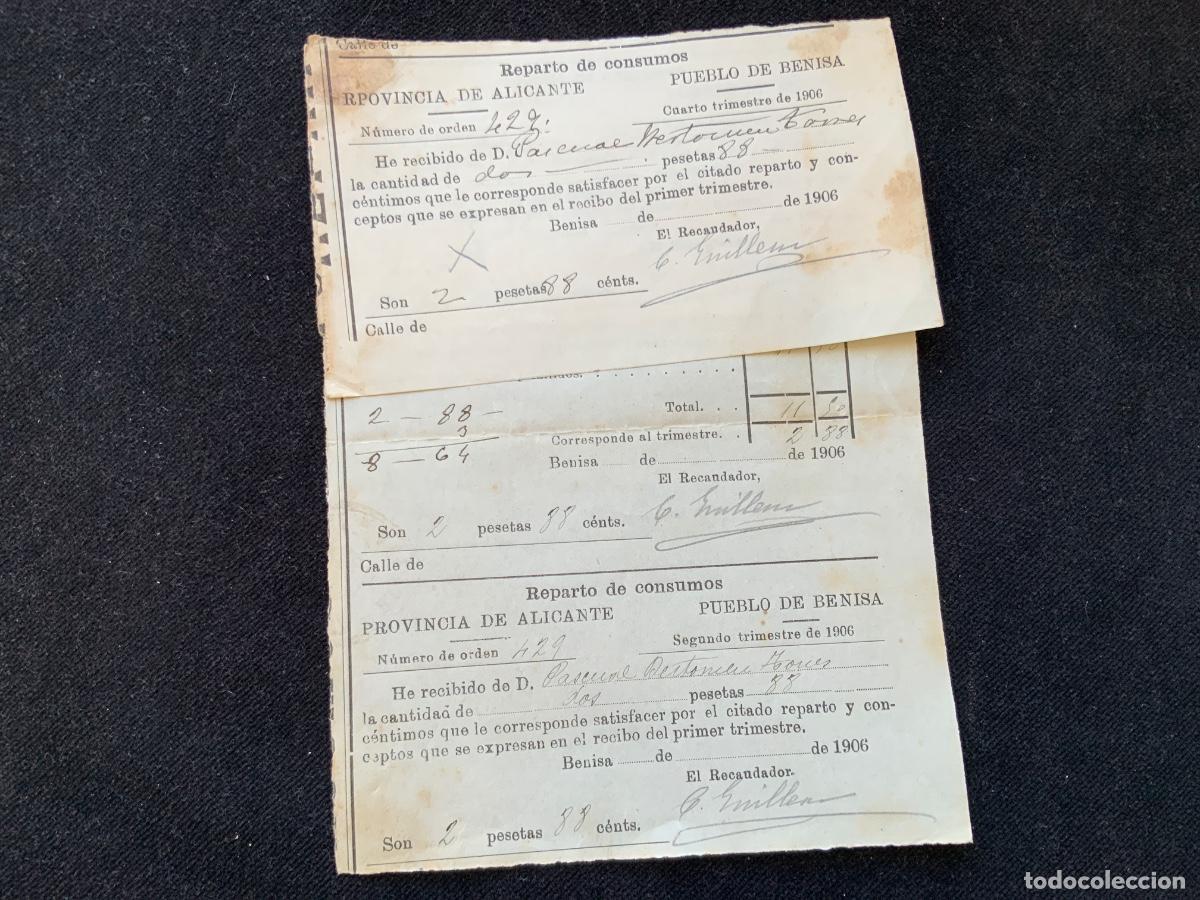 Calle de
Reparto de consumos
RPOVINCIA DE ALICANTE PUEBLO DE BENISA
Número de orden 429. Cuarto trimestre de 1906
He recibido de D. Pascual Bertomeu Torres
la cantidad de dos pesetas 88
céntimos que le corresponde satisfacer por el citado reparto y con-
ceptos que se expresan en el recibo del primer trimestre.
Benisa de de 1906
El Recaudador,
X C. Guillem
Son 2 pesetas 88 cénts.
Calle de
2 - 88 - Total. . . 11 50
3
Corresponde al trimestre. . 2 88
8 - 64
Benisa de de 1906
El Recaudador,
C. Guillem
Son 2 pesetas 88 cénts.
Calle de
Reparto de consumos
PROVINCIA DE ALICANTE PUEBLO DE BENISA
Número de orden 429 Segundo trimestre de 1906
He recibido de D. Pascual Bertomeu Torres
la cantidad de dos pesetas 88
céntimos que le corresponde satisfacer por el citado reparto y con-
ceptos que se expresan en el recibo del primer trimestre.
Benisa de de 1906
El Recaudador.
C. Guillem
Son 2 pesetas 88 cénts.
todocoleccion